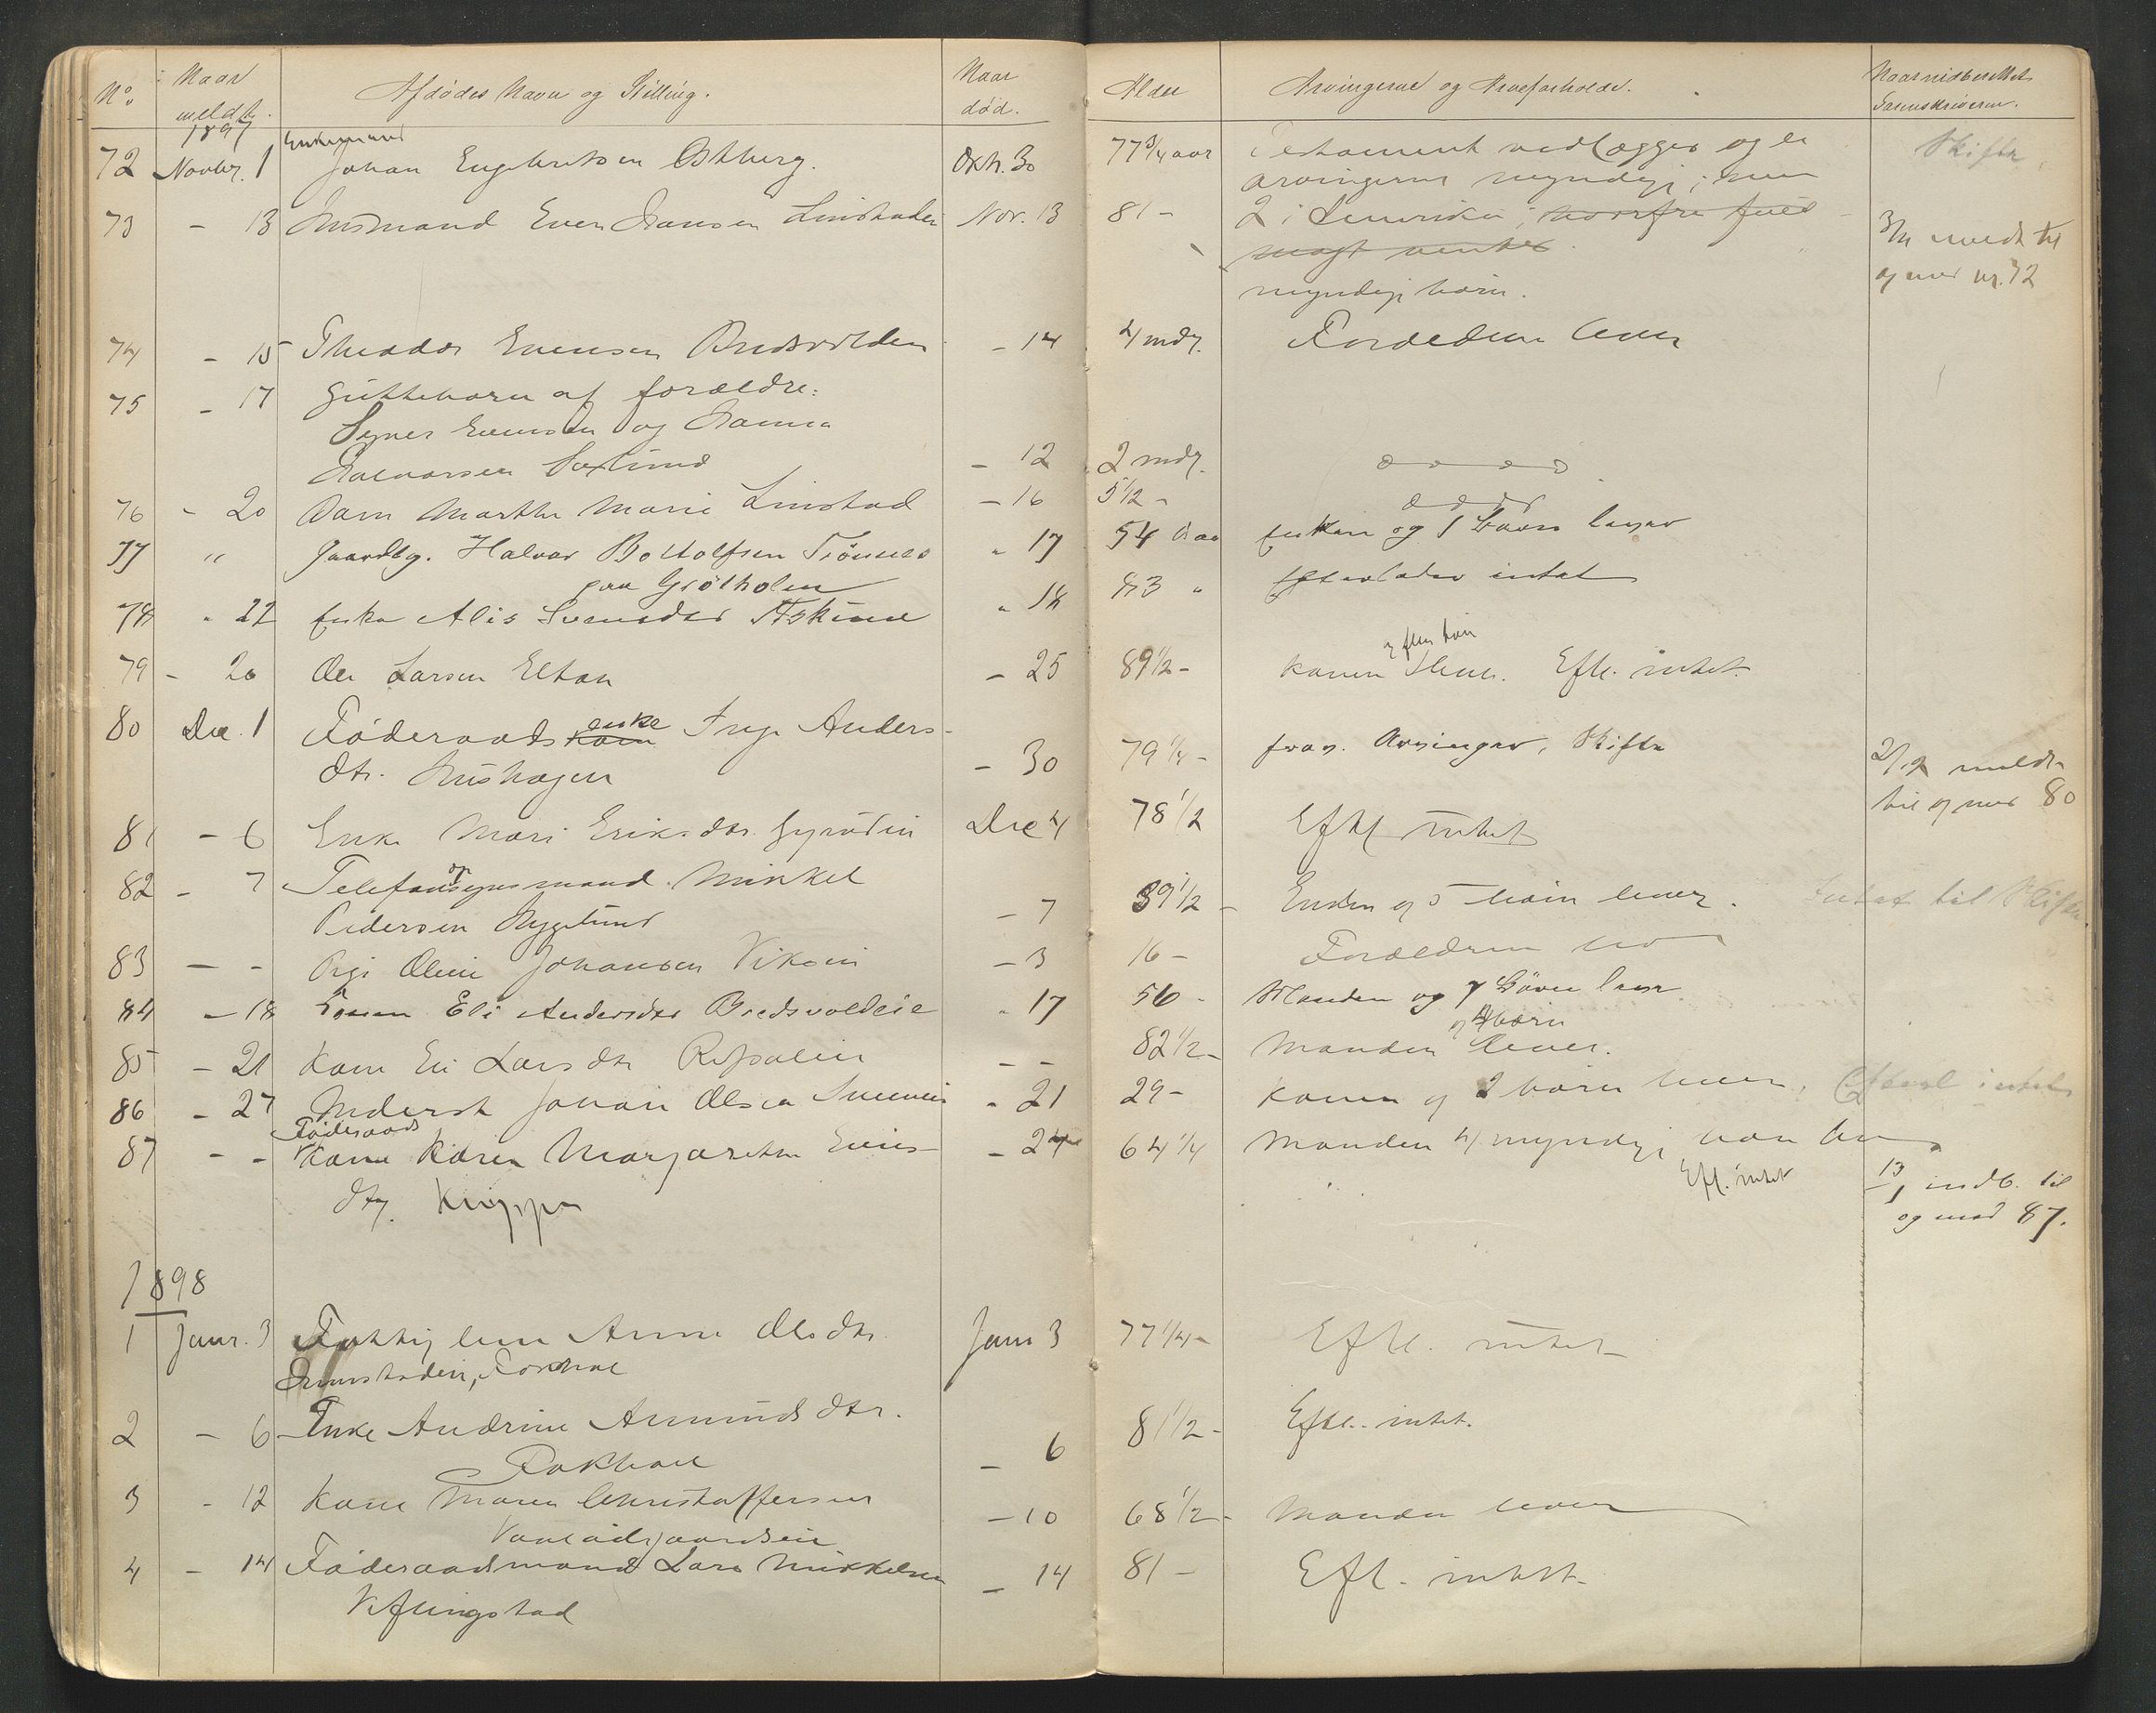 No. Naar meldt. Afdødes Navn og Stilling. Naar død. Alder Arvingerne og Arveforholdet. Naar indberettet Sorenskriveren.
1897
72 Novbr. 1 Enkemand Johan Engebretsen Ostberg. Oktr. 30 77 3/4 aar Testament vedlægges og er Skifte
arvingerne myndige; men
73 - 13 Husmand Even Hansen Linstadei Nov. 13 81 - 2 i Amerika, hvorfra fuld
magt ventes.
myndige børn.
3/11 meldt til
og med nr. 72
74 - 15 Theodor Evensen Bredsvolden - 14 4 mdr. Forældrene lever
75 - 17 Guttebarn af forældre:
Syver Evensen og Hanna
Halvorsen - 12 2 mdr. d d d d
76 - 20 Barn Marthe Marie Linstad - 16 5 1/2 - d d d d
77 " Gaardbg. Halvor Bottolfsen Trønnes " 17 54 aar Enken og 1 Barn lever
paa Grøtholen
78 " 22 Enke Alis Svensdtr Askime " 18 83 " Efterlader intet
79 - 26 Ole Larsen Eltan - 25 89 1/2 - Konen og flere børn lever. Efl. intet
80 Dec. 1 Føderaadskone enke Inge Anders-
dtr. Hushagen - 30 79 1/4 - frav. Arvinger, Skifte
2/12 meldt
til og med 80
81 - 6 Enke Mari Eriksdtr. Dec 4 78 1/2 Eftl intet
82 - 7 Telefonopsynsmand Mikkel
Pedersen Nygelund - 7 39 1/2 - Enken og 5 børn lever. Intet til Skifte.
83 - - Pige Oline Johansen Viksin - 3 16 - Forældrene lev
84 - 18 Konen Eli Andersdtr Bredsvoldeie " 17 56 - Manden og 7 Børn lever
85 - 21 Kone Eli Larsdtr - - 82 1/2 - Manden og 4 børn lever.
86 - 27 Inderst Johan Olsen - 21 29 - Konen og 2 børn lever. Efterl intet
87 - - Føderaads Kone Karen Margrethe Eriks-
dtr. Knippa - 24 64 1/4 Manden 4 myndige børn lev
Efl. intet
13/1 indb. til
og med 87.
1898
1 Janr. 3 Fattiglem Anne Olsdtr. Janr 3 77 1/4 - Eftl. intet
2 - 6 Enke Andrine Amundsdtr.
- 6 81 1/2 - Eftl. intet.
3 - 12 Kone Maren Christoffersen
- 10 68 1/2 - Manden lever
4 - 14 Føderaadsmand Lars Mikkelsen - 14 81 - Efl. intet
Vestingstad